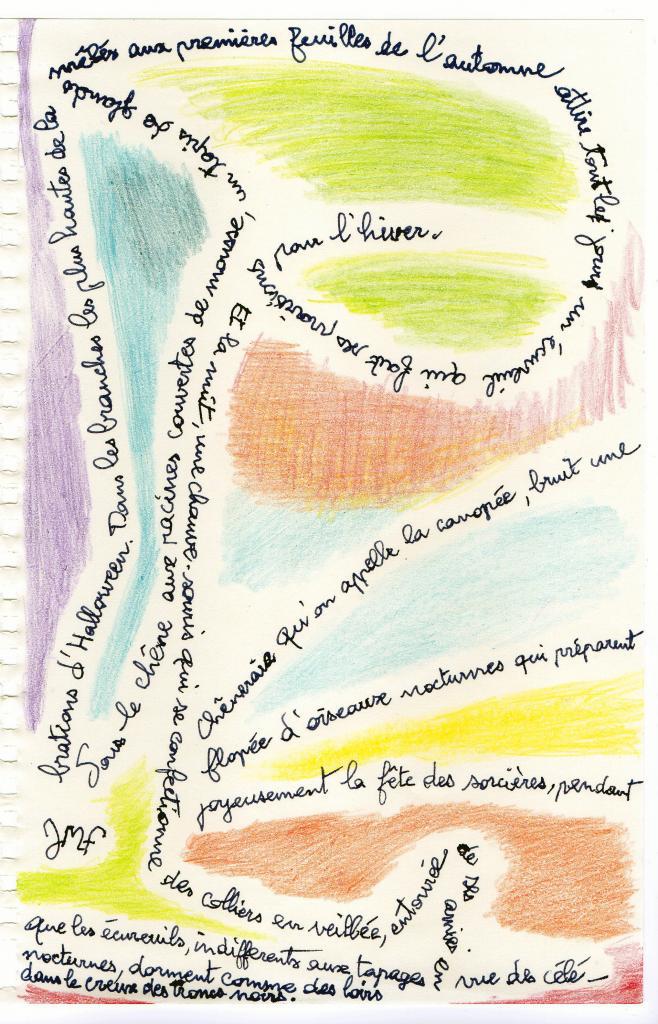 Sous le chêne aux racines couvertes de mousse,
un tapis de glands
mêlés aux premières feuilles de l'automne
attire tous les jours un écureuil qui fait ses provisions
pour l'hiver.
Et la nuit, une chauve-souris qui se confectionne
des colliers en veillée, entourée
de ses amies en vue des célé-
brations d'Halloween. Dans les branches les plus hautes de la
Chêneraie qu'on appelle la canopée, bruit une
flopée d'oiseaux nocturnes qui préparent
joyeusement la fête des sorcières, pendant
que les écureuils, indifférents aux tapages
nocturnes, dorment comme des loirs
dans le creux des troncs noirs.